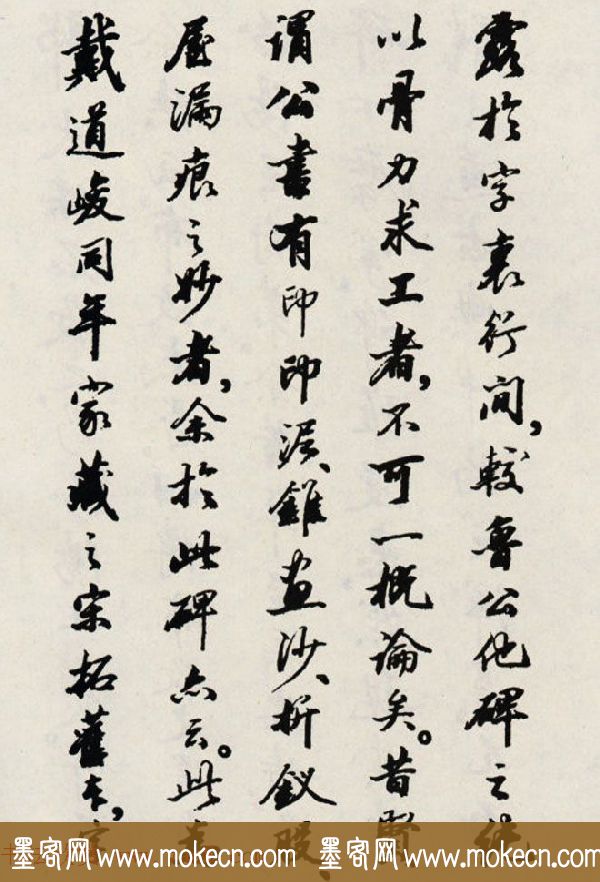 露於字裏行间，較魯公他碑之純
以骨力求工者，不可一概論矣。昔賢
谓公書有印印泥、錐画沙、折釵股、
屋漏痕之妙者，余於此碑亦云。此
戴道峻同年家藏之宋拓舊本，
墨客网 www.mokecn.com 墨客网 www.mokecn.com